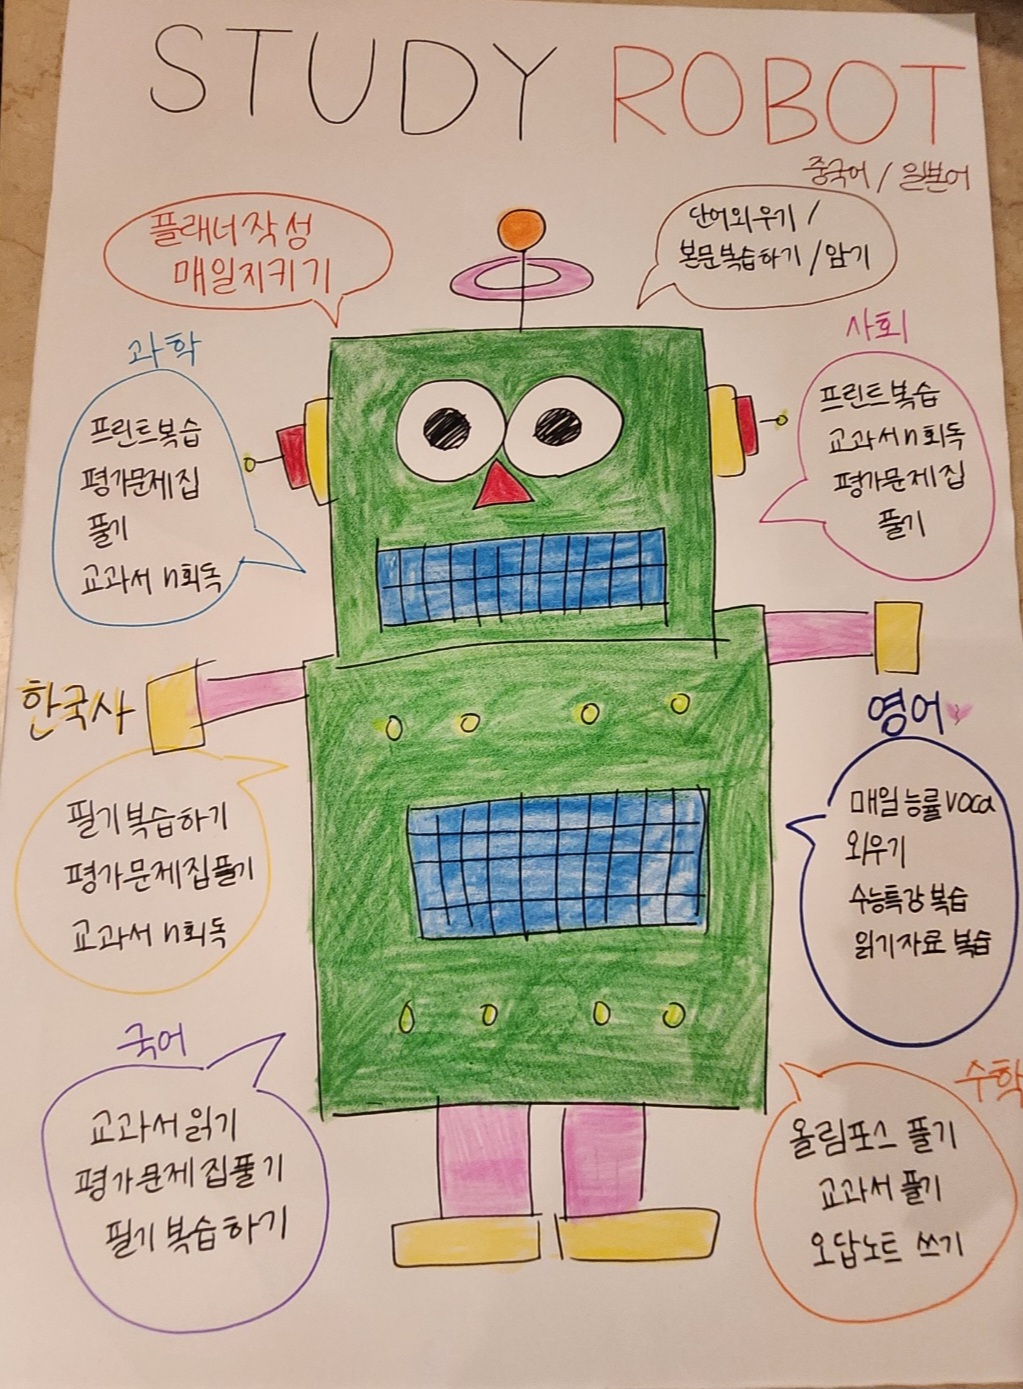 STUDY ROBOT
중국어 / 일본어
플래너작성
매일지키기
단어외우기 /
본문복습하기 / 암기
과학
프린트복습
평가문제집
풀기
교과서 n회독
사회
프린트복습
교과서 n회독
평가문제집
풀기
한국사
필기복습하기
평가문제집풀기
교과서 n회독
영어
매일 능률 voca
외우기
수능특강 복습
읽기자료 복습
국어
교과서 읽기
평가문제집풀기
필기 복습하기
수학
올림포스 풀기
교과서 풀기
오답노트 쓰기